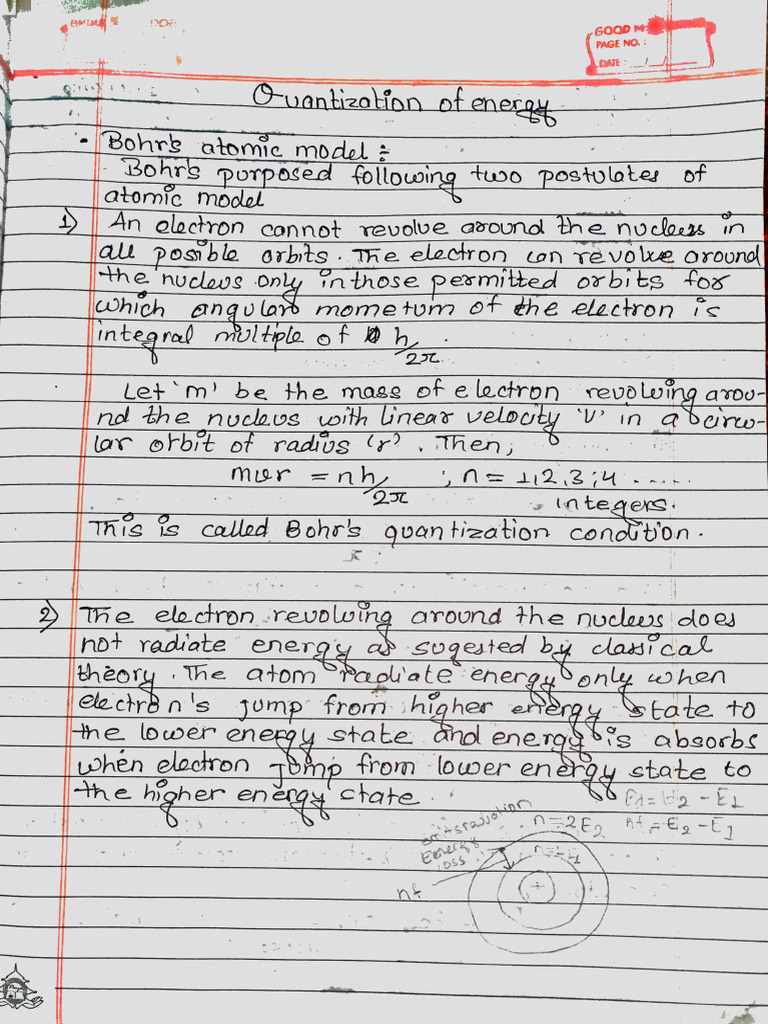 GOOD M
PAGE NO. :
DATE : / /
Quantization of energy
• Bohr's atomic model :
Bohr's purposed following two postulates of
atomic model
1) An electron cannot revolve around the nucleus in
all possible orbits. The electron can revolve around
the nucleus only in those permitted orbits for
which angular mometum of the electron is
integral multiple of h/2π
Let 'm' be the mass of electron revolving arou-
nd the nucleus with linear velocity 'v' in a circu-
lar orbit of radius (r). Then,
mvr = nh/2π ; n = 1,2,3,4 .....
integers.
This is called Bohr's quantization condition.
2) The electron revolving around the nucleus does
not radiate energy as sugested by classical
theory. The atom radiate energy only when
electron's jump from higher energy state to
the lower energy state and energy is absorbs
when electron jump from lower energy state to
the higher energy state.
E2 - E1
n=2E2 hf = E2 - E1
radiation
Eenergy
loss
hf